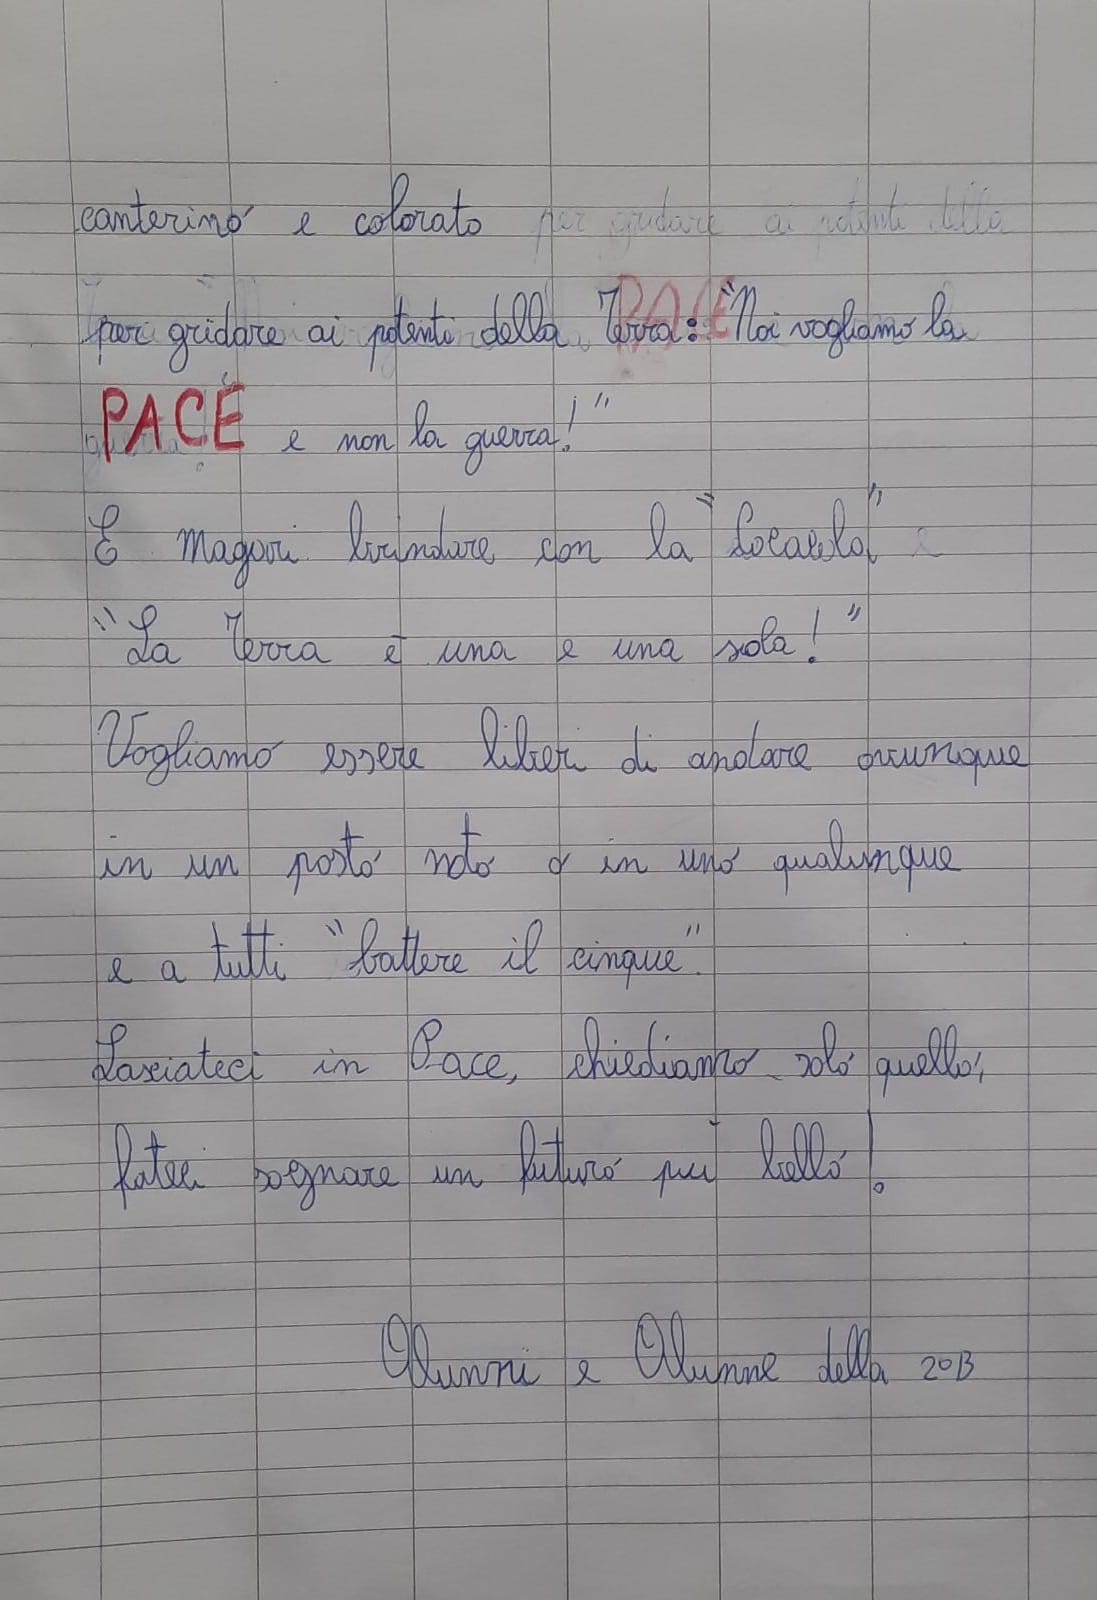 canterino e colorato per gridare ai potenti della
per gridare ai potenti della Terra: "Noi vogliamo la
PACE e non la guerra!"
E magari brindare con la "Cocacola"
"La Terra è una e una sola!"
Vogliamo essere liberi di andare ovunque
in un posto noto o in uno qualunque
e a tutti "battere il cinque".
Lasciateci in Pace, chiediamo solo quello,
fateci sognare un futuro più bello!
Alunni e Alunne della 2°B